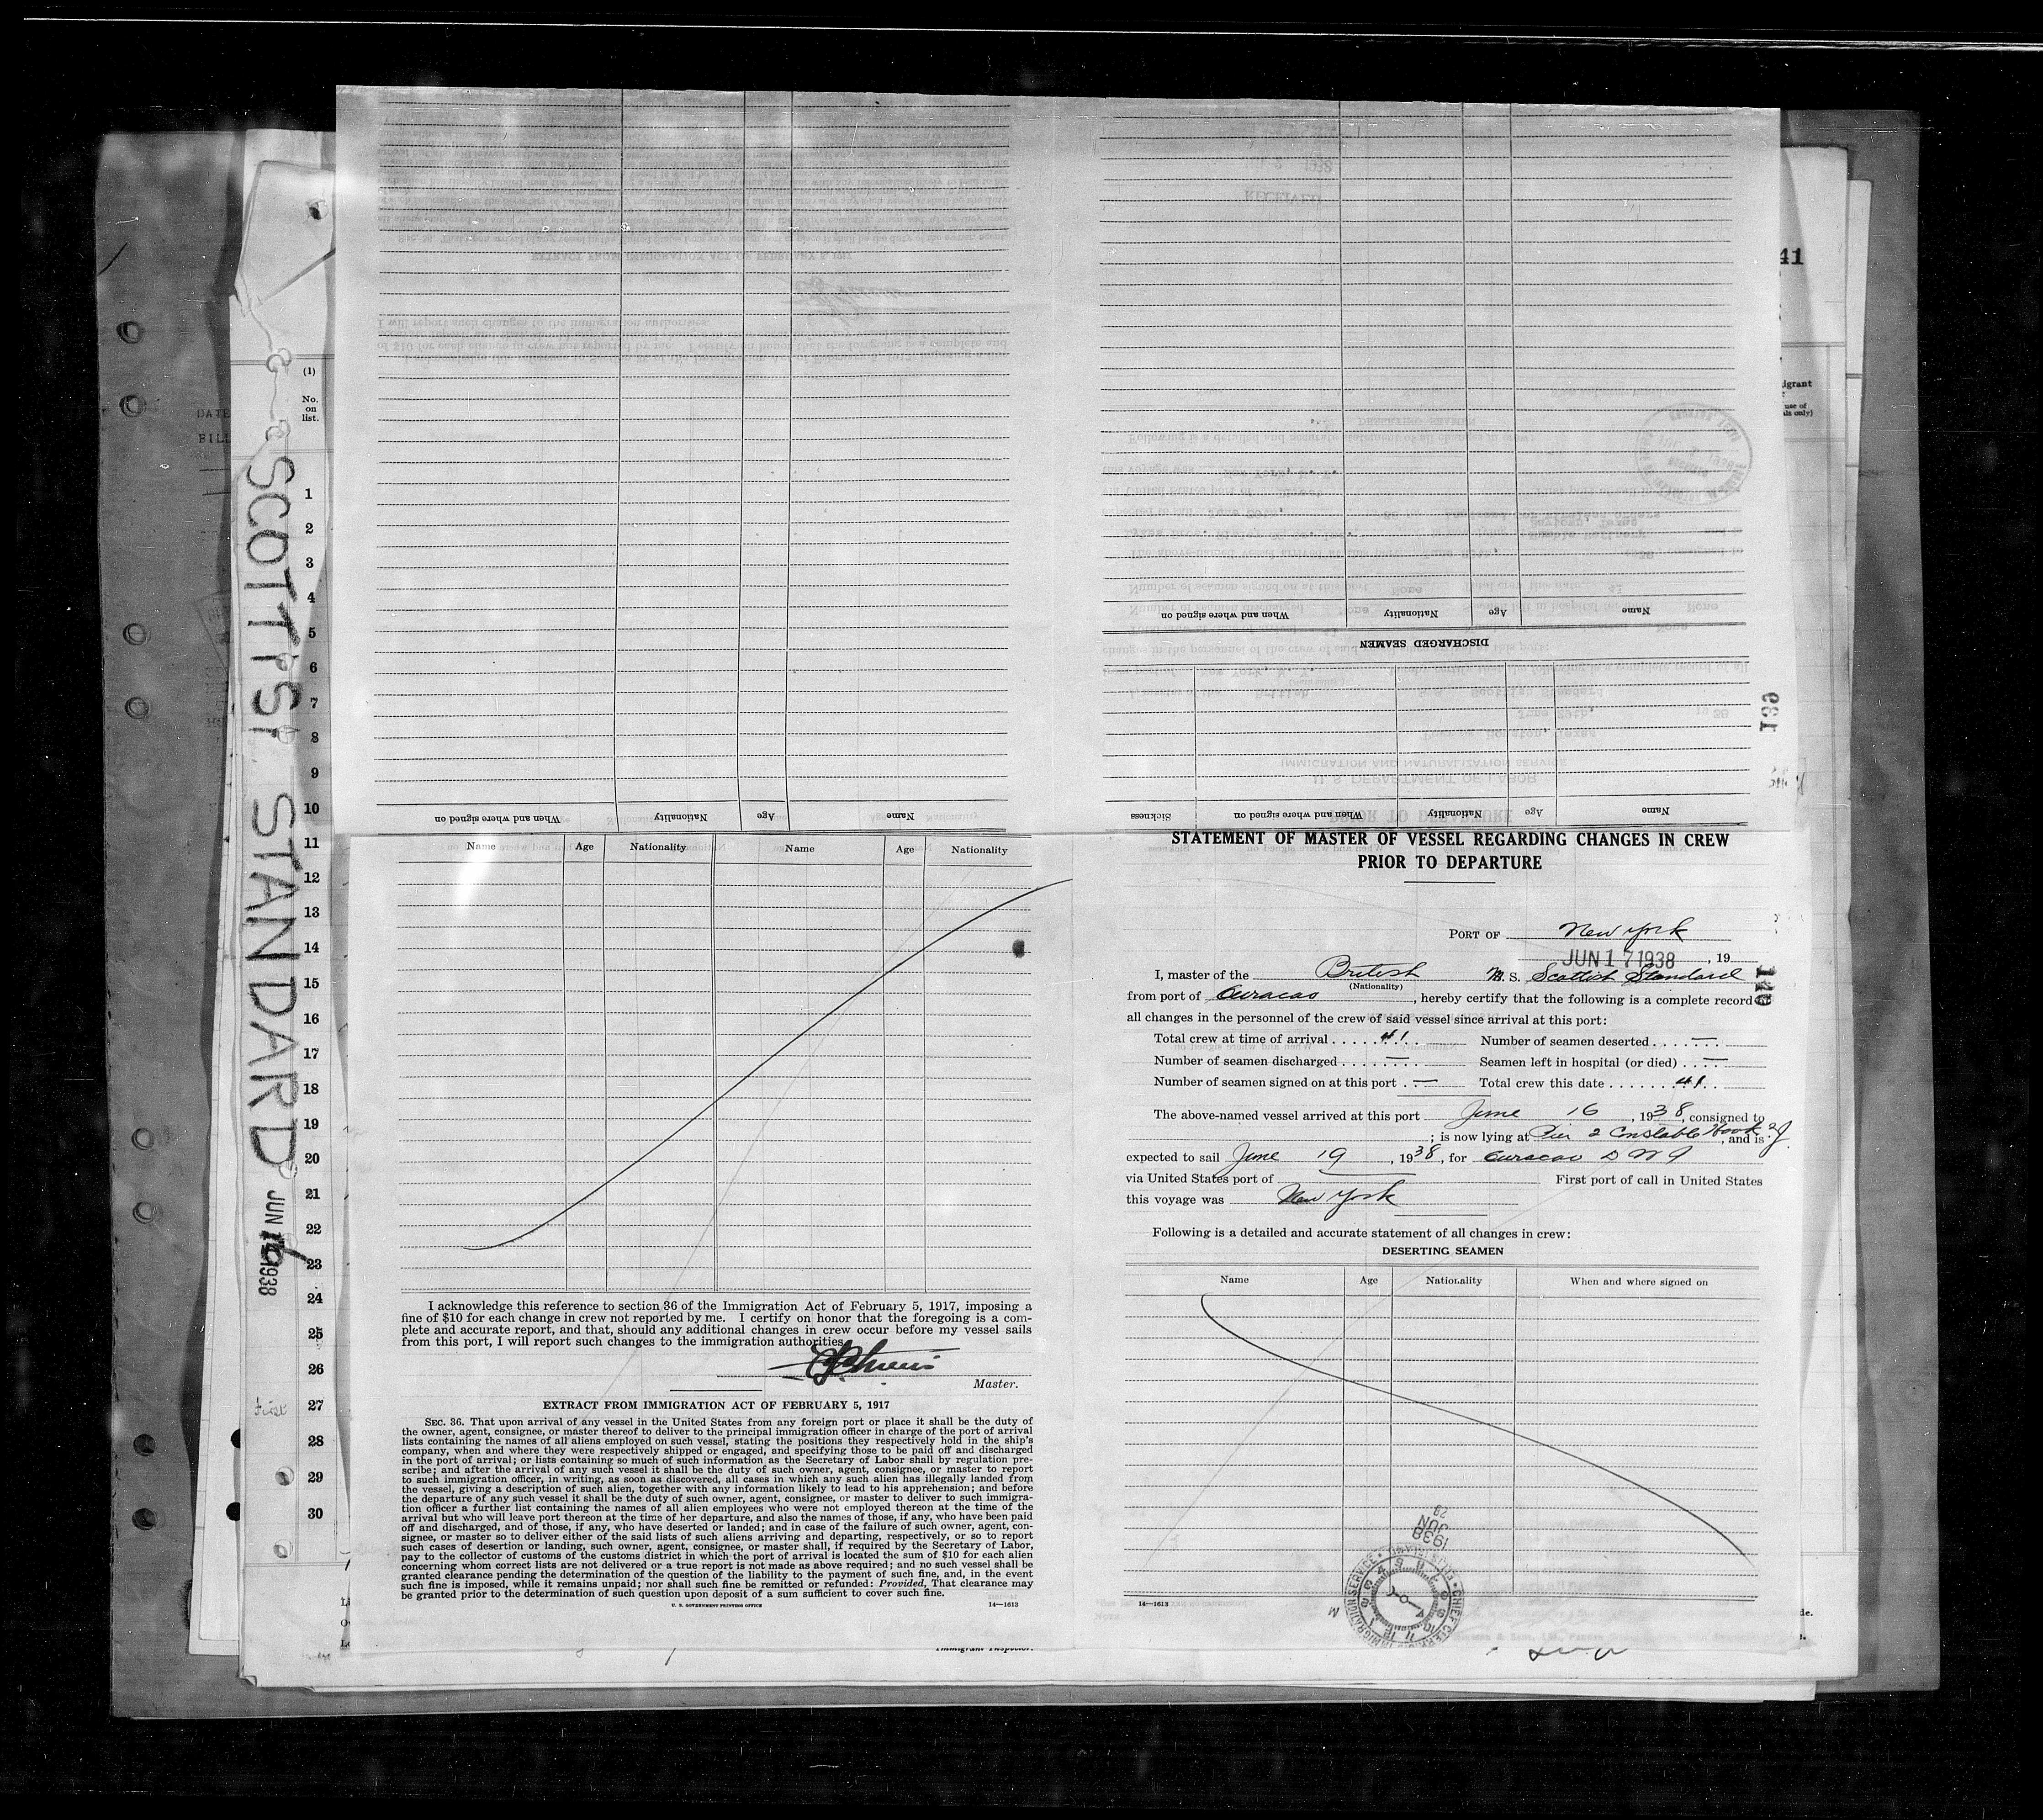 41
SCOTTISH STANDARD JUN 16 1938
(1)
No.
on
list.
1
2
3
4
5
6
7
8
9
10
11
12
13
14
15
16
17
18
19
20
21
22
23
24
25
26
27
28
29
30
When and where signed on Nationality Age Name
Name Age Nationality When and where signed on
DISCHARGED SEAMEN
139
Sickness When and where signed on Nationality Age Name
Name Age Nationality Name Age Nationality
I acknowledge this reference to section 36 of the Immigration Act of February 5, 1917, imposing a
fine of $10 for each change in crew not reported by me. I certify on honor that the foregoing is a com-
plete and accurate report, and that, should any additional changes in crew occur before my vessel sails
from this port, I will report such changes to the immigration authorities.
Master.
EXTRACT FROM IMMIGRATION ACT OF FEBRUARY 5, 1917
SEC. 36. That upon arrival of any vessel in the United States from any foreign port or place it shall be the duty of
the owner, agent, consignee, or master thereof to deliver to the principal immigration officer in charge of the port of arrival
lists containing the names of all aliens employed on such vessel, stating the positions they respectively hold in the ship's
company, when and where they were respectively shipped or engaged, and specifying those to be paid off and discharged
in the port of arrival; or lists containing so much of such information as the Secretary of Labor shall by regulation pre-
scribe; and after the arrival of any such vessel it shall be the duty of such owner, agent, consignee, or master to report
to such immigration officer, in writing, as soon as discovered, all cases in which any such alien has illegally landed from
the vessel, giving a description of such alien, together with any information likely to lead to his apprehension; and before
the departure of any such vessel it shall be the duty of such owner, agent, consignee, or master to deliver to such immigra-
tion officer a further list containing the names of all alien employees who were not employed thereon at the time of the
arrival but who will leave port thereon at the time of her departure, and also the names of those, if any, who have been paid
off and discharged, and of those, if any, who have deserted or landed; and in case of the failure of such owner, agent, con-
signee, or master so to deliver either of the said lists of such aliens arriving and departing, respectively, or so to report
such cases of desertion or landing, such owner, agent, consignee, or master shall, if required by the Secretary of Labor,
pay to the collector of customs of the customs district in which the port of arrival is located the sum of $10 for each alien
concerning whom correct lists are not delivered or a true report is not made as above required; and no such vessel shall be
granted clearance pending the determination of the question of the liability to the payment of such fine, and, in the event
such fine is imposed, while it remains unpaid; nor shall such fine be remitted or refunded: Provided, That clearance may
be granted prior to the determination of such question upon deposit of a sum sufficient to cover such fine.
U. S. GOVERNMENT PRINTING OFFICE 14—1613
Immigrant Inspector.
STATEMENT OF MASTER OF VESSEL REGARDING CHANGES IN CREW
PRIOR TO DEPARTURE
PORT OF New York
JUN 17 1938, 19
I, master of the British M. S. Scottish Standard
(Nationality)
from port of Curacao, hereby certify that the following is a complete record of
140
all changes in the personnel of the crew of said vessel since arrival at this port:
Total crew at time of arrival 41 Number of seamen deserted —
Number of seamen discharged — Seamen left in hospital (or died) —
Number of seamen signed on at this port — Total crew this date 41
The above-named vessel arrived at this port June 16, 1938, consigned to
; is now lying at Pier 2 Constable Hook NJ, and is
expected to sail June 19, 1938, for Curacao D W I
via United States port of — First port of call in United States
this voyage was New York
Following is a detailed and accurate statement of all changes in crew:
DESERTING SEAMEN
Name Age Nationality When and where signed on
14—1613
1938
JUN